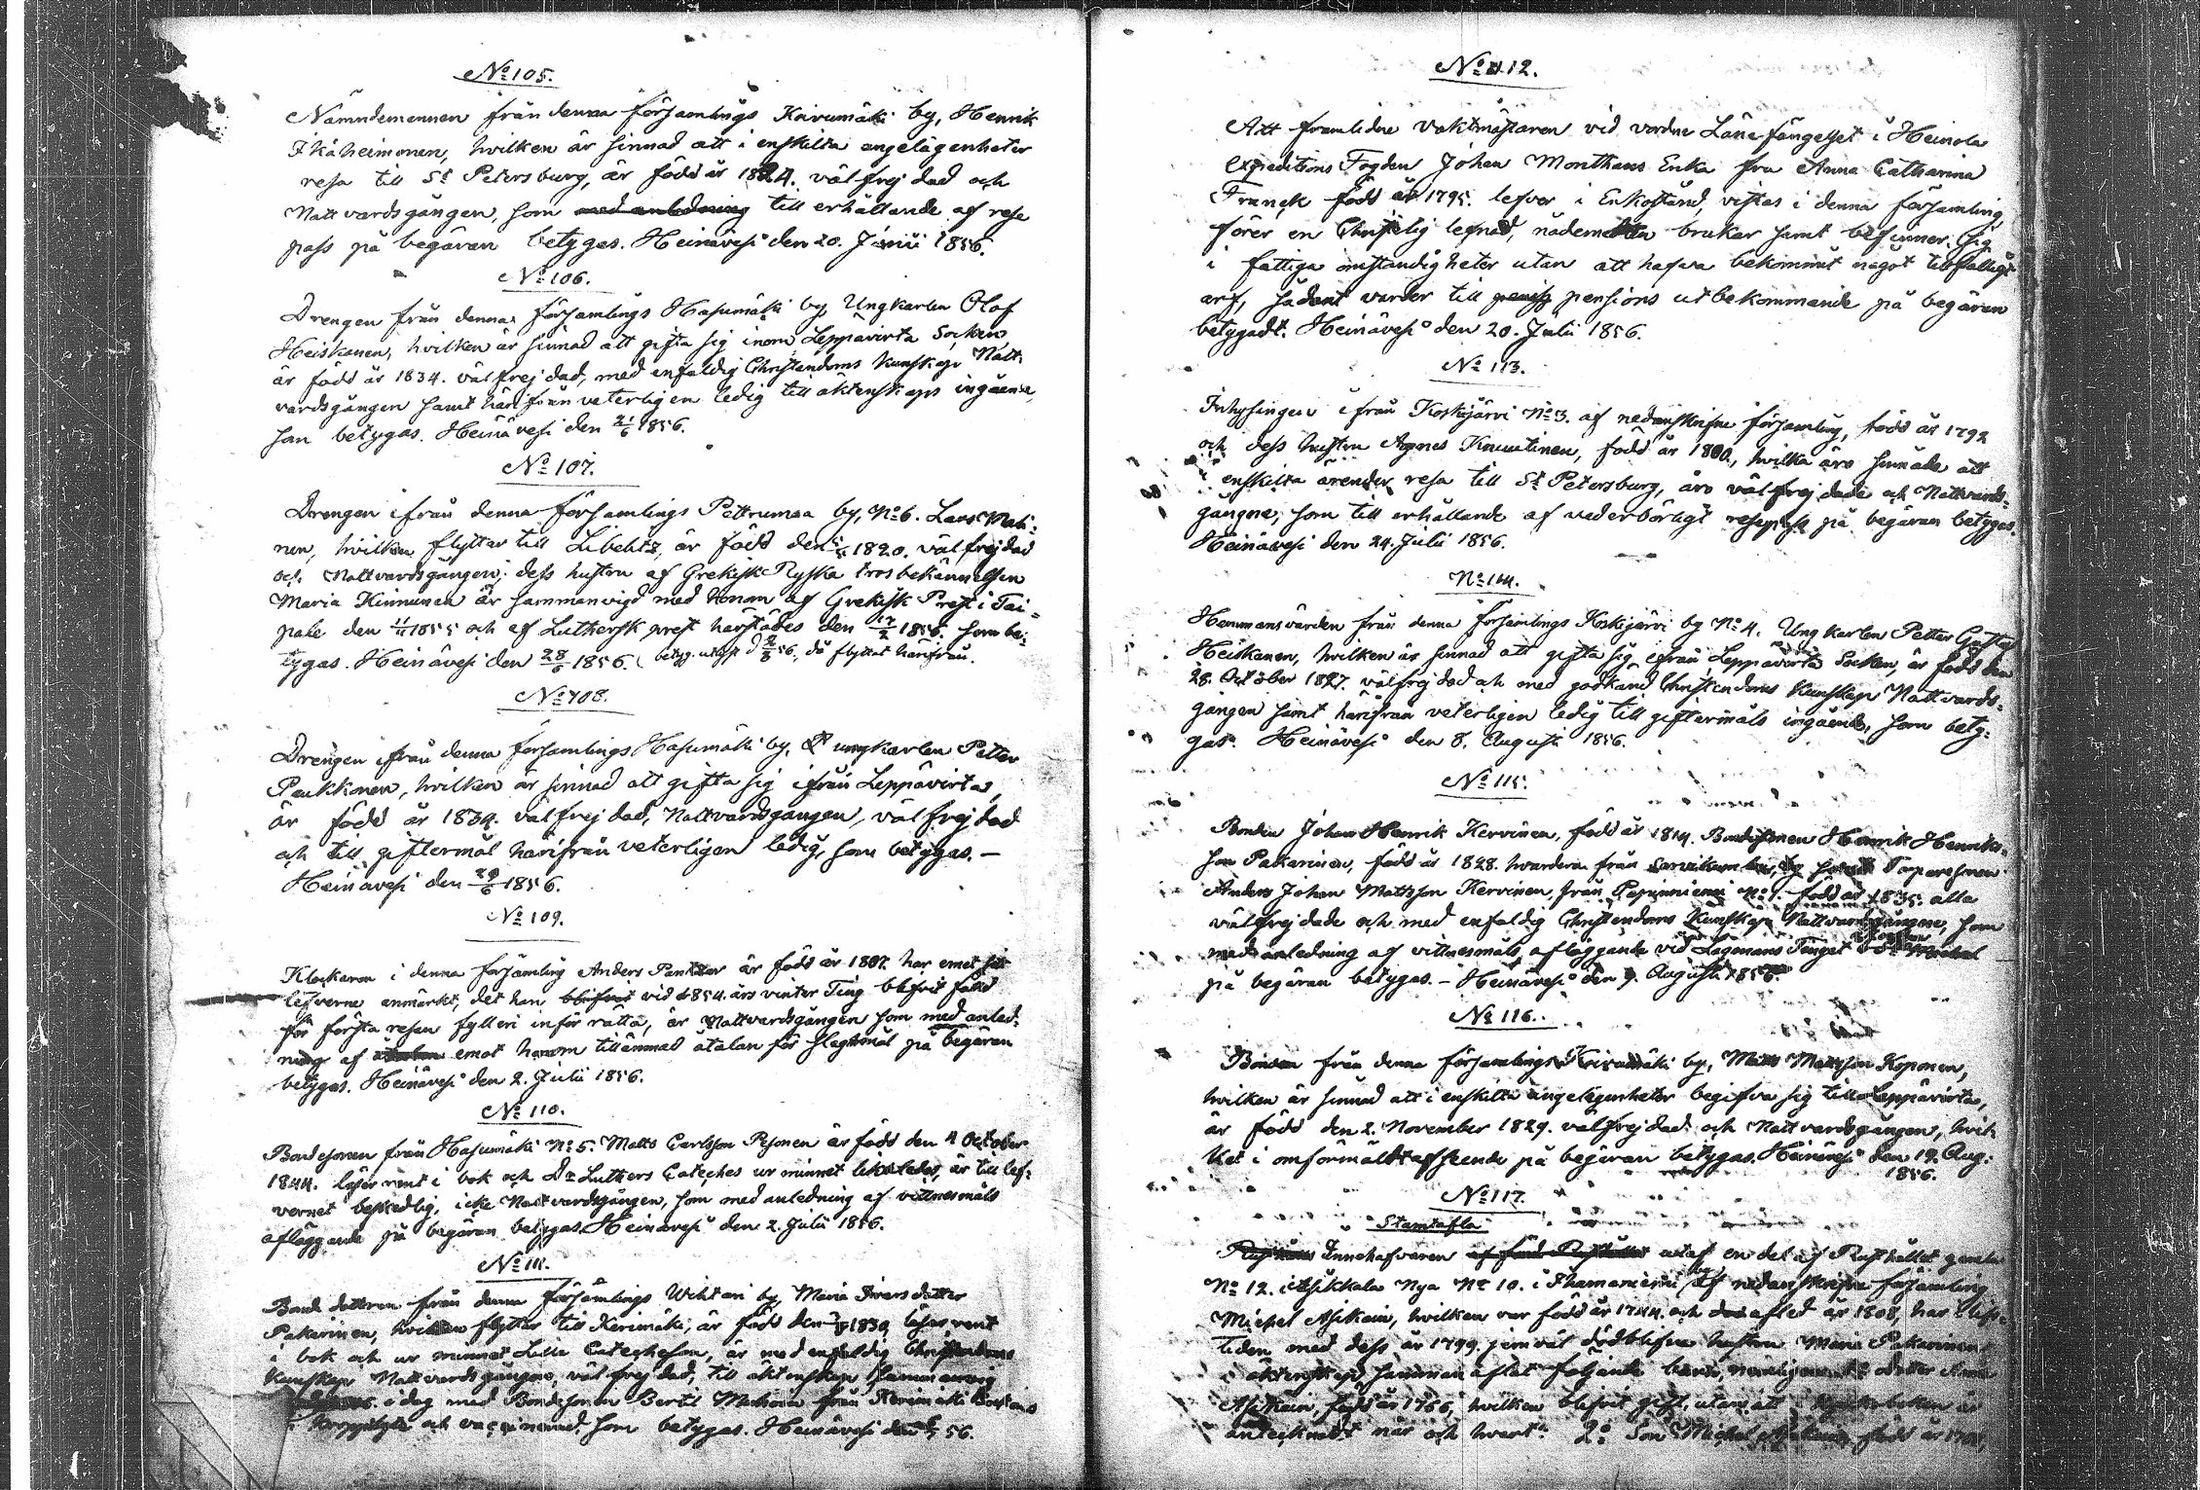 No 105.
Nämndemennen från denna församlings Koivumäki by, Henrik
Ikäheimonen, hvilken är sinnad att i enskilta angelägenheter
resa till St Petersburg, är född år 1824. välfrejdad och
Nattvardsgången, som med anledning till erhållande af rese
pass på begäran betygas. Heinävesi den 20. Junii 1856.
No 106.
Drengen från denna församlings Hasumäki by, Ungkarlen Olof
Heiskanen, hvilken är sinnad att gifta sig inom Leppävirta Socken,
är född år 1834. välfrejdad, med enfaldig Christendoms Kunskap Natt-
vardsgången samt härifrån veterligen ledig till äktenskaps ingående,
som betygas. Heinävesi den 21/6 1856.
No 107.
Drengen ifrån denna församlings Petrumaa by, No 6. Lars Mati-
nen, hvilken flyttar till Libelits, är född den 1820. välfrejdad
och Nattvardsgången; dess hustru af Grekisk Ryska trosbekännelsen
Maria Kinnunen är sammanvigd med honom af Grekisk Prest i Tai-
pale den 11/11 1855 och af Luthersk prest härstädes den 17/2 1856. som be-
tygas. Heinävesi den 28/6 1856. då flyttat härifrån.
No 108.
Drengen ifrån denna församlings Hasumäki by, ungkarlen Petter
Paukkonen, hvilken är sinnad att gifta sig ifrån Leppävirta,
är född år 1834. välfrejdad, Nattvardsgången, välfrejdad
och till giftermål härifrån veterligen ledig, som betygas. —
Heinävesi den 29/6 1856.
No 109.
Klockaren i denna församling Anders är född år 1807. har emot sitt
lefverne anmärkt, det han vid 1854. års vinter Ting blifvit fälld
för första resan fylleri inför rätta, är Nattvardsgången som med anled-
ning af emot honom tillämnad åtalan för slagsmål på begäran
betygas. Heinävesi den 2. Julii 1856.
No 110.
Bondesonen från Hasumäki No 5. Matts Carlsson Pesonen är född den 4 October
1844. läser rent i bok och Dr Luthers Cateches ur minnet likaledes, är till lef-
vernet beskedlig, icke Nattvardsgången, som med anledning af vittnesmåls
afläggande på begäran betygas. Heinävesi den 2. Julii 1856.
No 111.
Bonde dottren från denna församlings Wihtari by Maria Ivarsdotter
Pakarinen, hvilken flyttar till Kerimäki, är född den 1839, läser rent
i bok och ur minnet Lilla Catechesen, är med enfaldig Christendoms
Kunskap Nattvardsgången, välfrejdad, till äktenskap sammanvig
i dag med Bondesonen Bertil från Kerimäki
och vaccinerad. som betygas. Heinävesi den 56.
No 112.
Att framlidne vaktmästaren vid vordne Länefängelset i Heinola
Expeditions Fogden Johan Monthans Enka fru Anna Catharina
Franck född år 1795. lefver i Enkostånd, vistas i denna församling,
förer en Christelig lefnad, nådemedlen brukar samt befinner sig
i fattiga omständigheter utan att hafva bekommit något tillfälligt
arf, sådant varder till pensions utbekommande på begäran
betygadt. Heinävesi den 20. Julii 1856.
No 113.
Inhysingen ifrån Koskijärvi No 3. af nedanskrifne församling, född år 1792
och dess hustru Agnes Knuutinen, född år 1800, hvilka äro sinnade att
i enskilta ärender resa till St Petersburg, äro välfrejdade och Nattvards-
gångne, som till erhållande af vederbörligt resepass på begäran betygas.
Heinävesi den 24. Julii 1856.
No 114.
Hemmansvärden från denna församlings Koskijärvi by No 4. Ungkarlen Petter
Heiskanen, hvilken är sinnad att gifta sig ifrån Leppävirta Socken, är född den
28. October 1827. välfrejdad och med godkänd Christendoms Kunskap Nattvards-
gången samt härifrån veterligen ledig till giftermåls ingående, som bety-
gas. Heinävesi den 8. Augusti 1856.
No 115.
Bonden Johan Henrik Kervinen, född år 1814. Bondesonen Henrik Henriks-
son Pakarinen, född år 1828. hvardera från Torparesonen
Anders Johan Mattsson Kervinen, från No 1. född år 1835. alla
välfrejdade och med enfaldig Christendoms Kunskap Nattvardsgångne, som
med anledning af vittnesmåls afläggande vid Lagmans Tinget
på begäran betygas. — Heinävesi den 9. Augusti 1856.
No 116.
Bonden från denna församlings Koivumäki by, Matts Mattsson Koponen,
hvilken är sinnad att i enskilta angelägenheter begifva sig till Leppävirta,
är född den 2. November 1829. välfrejdad och Nattvardsgången, hvil-
ket i omförmält afseende på begäran betygas. Heinävesi den 19. Aug:
1856.
No 117.
Stamtafla
Innehafvaren utaf en del af Rusthållet gamla
No 12. i Asikkala Nya No 10. i af nedanskrifne församling
Michel Asikain, hvilken var född år 1744. och afled år 1808, har i lifs-
tiden med dess år 1799. jemväl dödblifne hustru Maria Pakarinen
i äktenskap sammanaflat följande barn, nemligen 1o dotter Anna
Asikain, född år 1766, hvilken blifvit gift, utan att i Kyrkoboken är
antecknadt när och hvart. 2o Son Michel född år